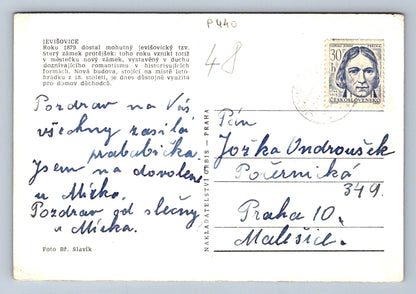 P 440
48
JEVIŠOVICE
Roku 1879 dostal mohutný jevišovický tzv.
Starý zámek protějšek: toho roku vznikl totiž
v městečku nový zámek, vystavěný v duchu
doznívajícího romantismu v historisujících
formách. Nová budova, stojící na místě leto-
hrádku z 18. století, je dnes důstojně využita
pro domov důchodců.
Pozdrav na Vás
všechny zasílá
prababička,
Jsem na dovolené
u Mirka.
Pozdrav od slečny
a Mirka.
Foto Bř. Slavík
NAKLADATELSTVÍ ORBIS — PRAHA
30
ČESKOSLOVENSKO
Pán
Jožka Ondroušek
Počernická
349.
Praha 10.
Malešice.